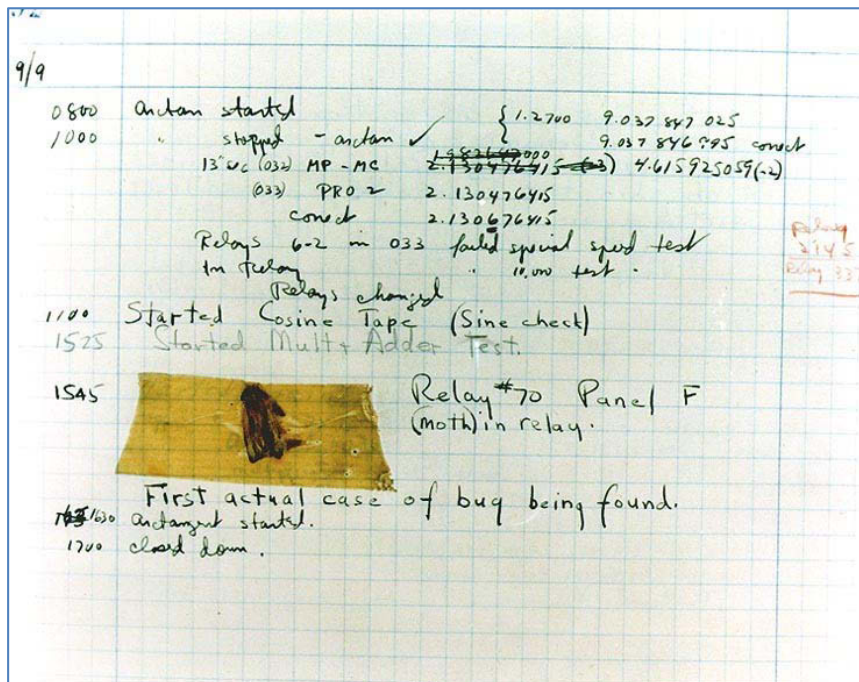 9/9
0800 arctan started { 1.2700 9.037 847 025
1000 " stopped - arctan ✓ 9.037 846 995 correct
13"uc (032) MP - MC 2.130476415 (-3) 4.615925059(-2)
(033) PRO 2 2.130476415
correct 2.130676415
Relays 6-2 in 033 failed special speed test
In Relay " 10.000 test .
Relays changed
1100 Started Cosine Tape (Sine check)
1525 Started Mult + Adder Test.
1545 Relay #70 Panel F
(moth) in relay.
First actual case of bug being found.
1630 arctangent started.
1700 closed down .
Relay
2145
Relay 33